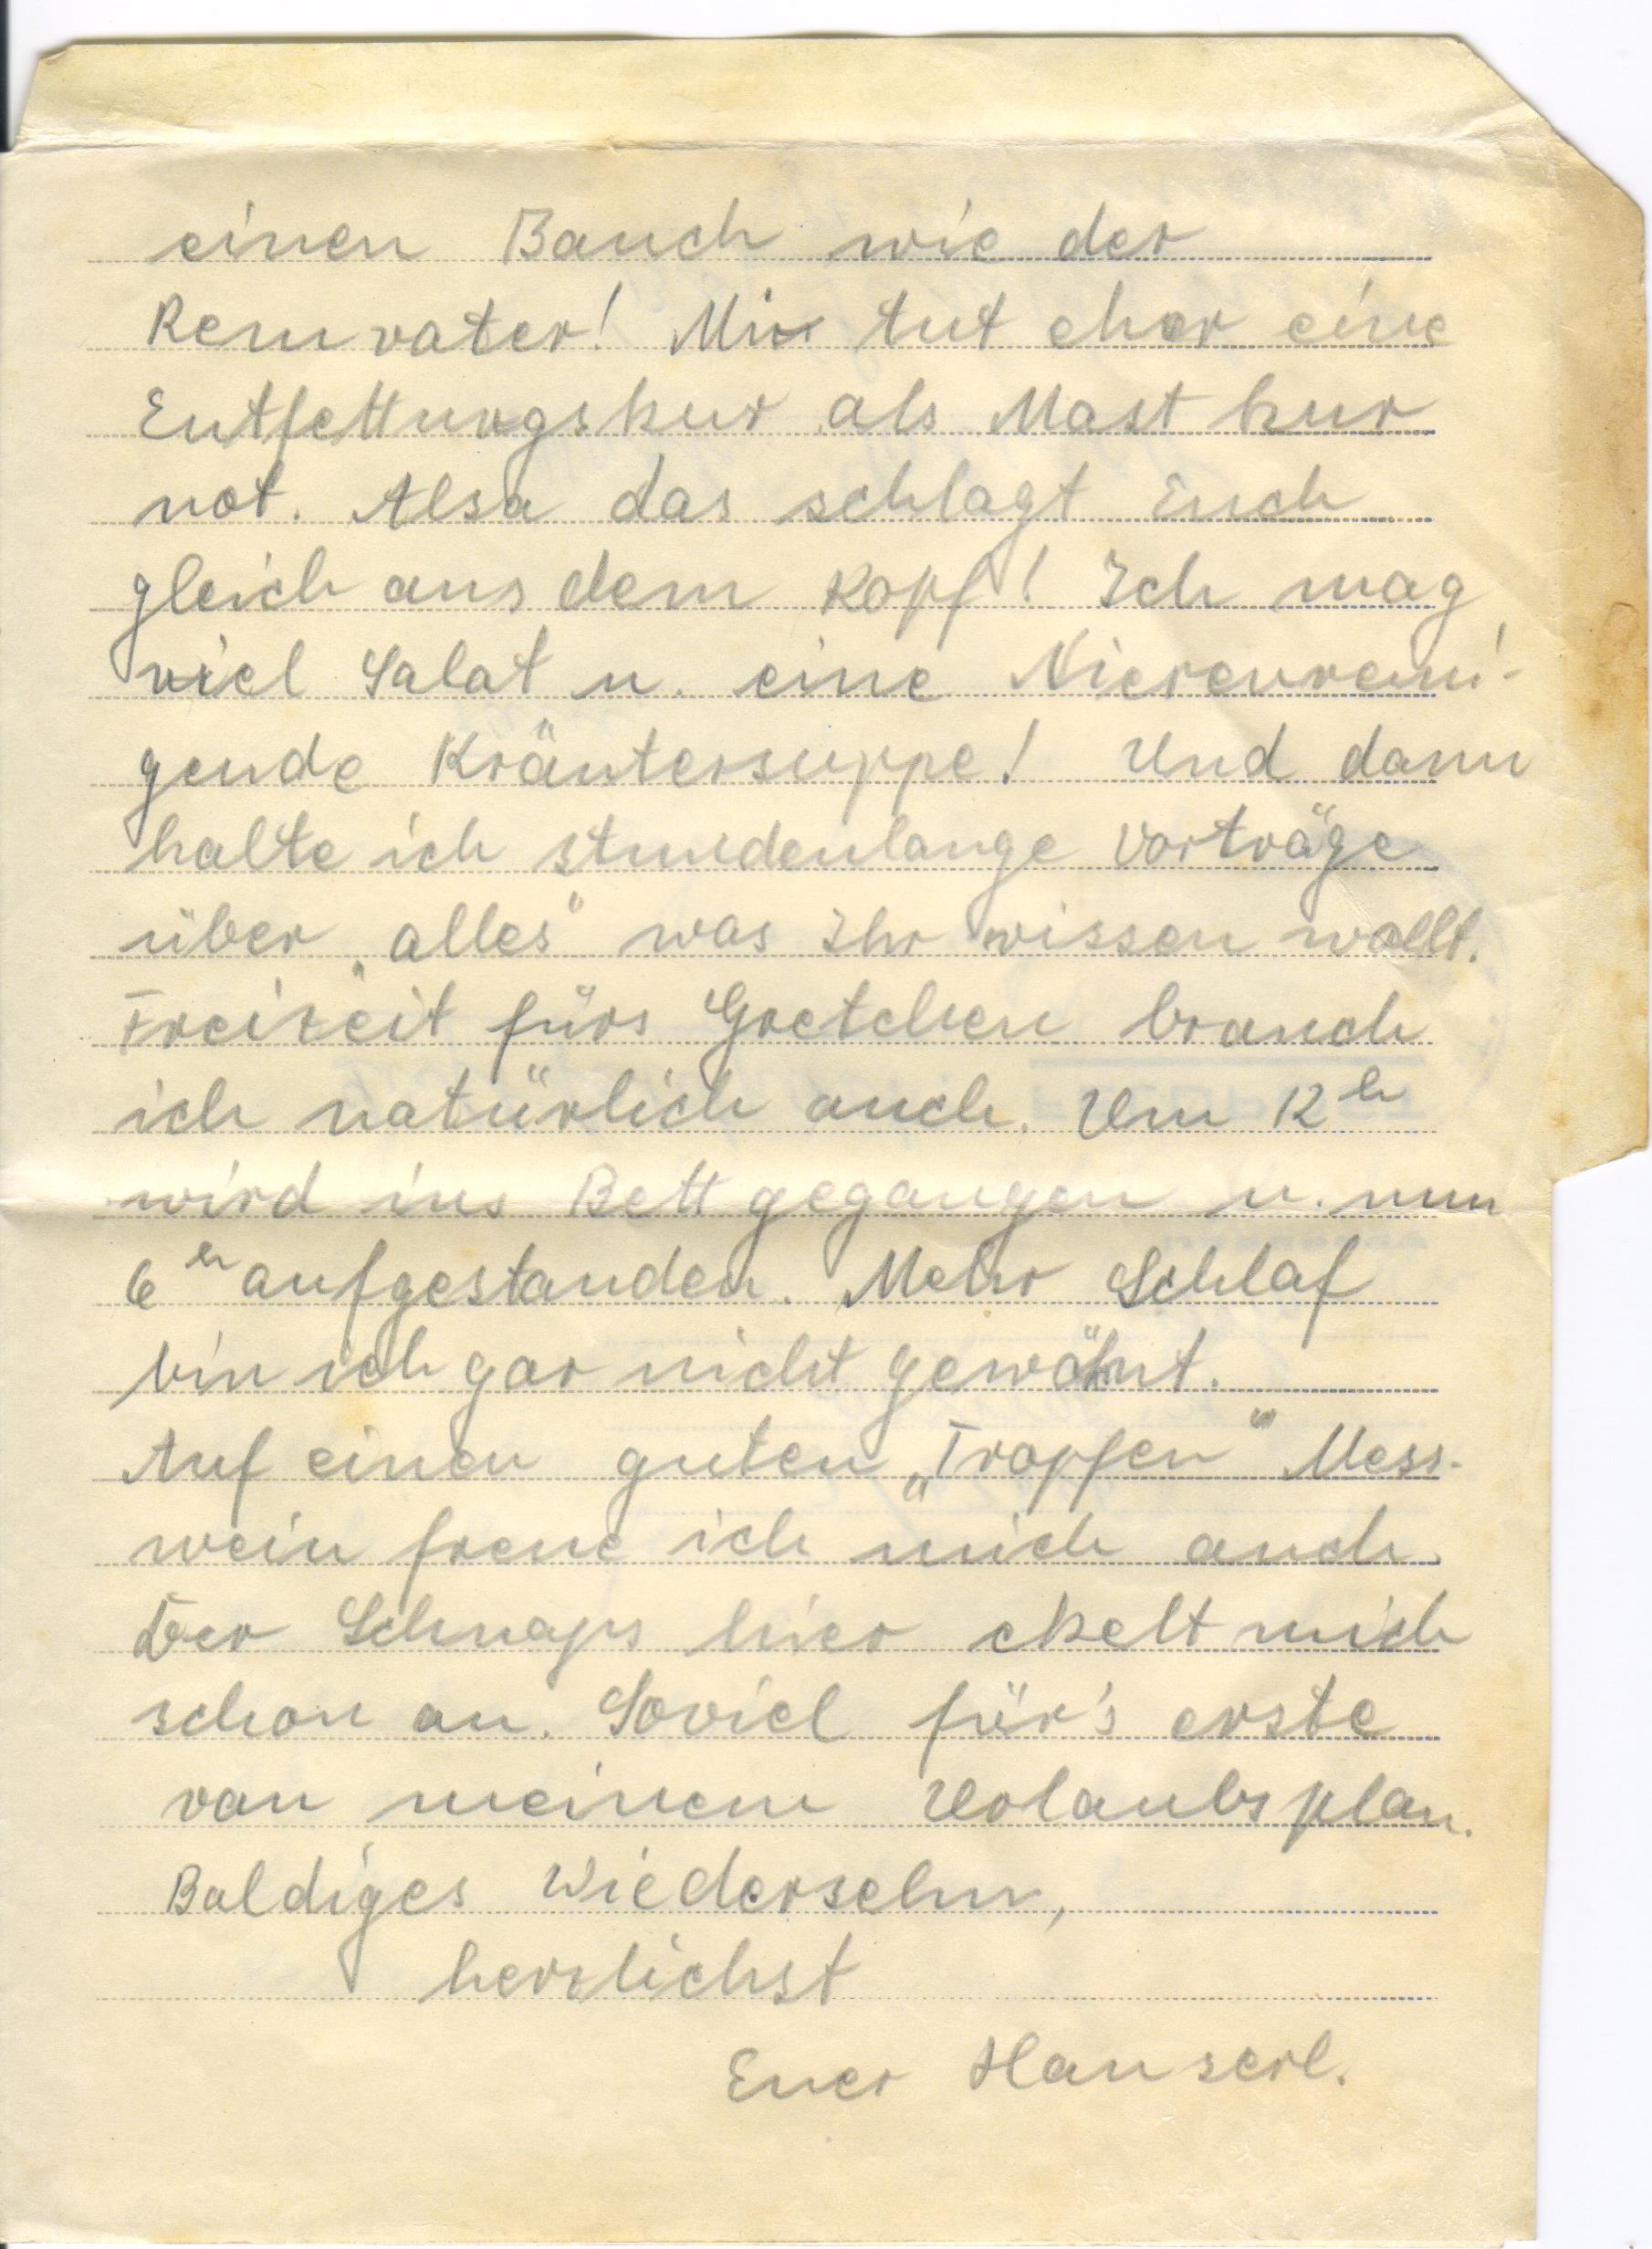 einen Bauch wie der
Remvater! Mir tut eher eine
Entfettungskur als Mastkur
not. Also das schlagt Euch
gleich aus dem Kopf! Ich mag
viel Salat u. eine Nierenreini-
gende Kräutersuppe! Und dann
halte ich stundenlange Vorträge
über „alles" was Ihr wissen wollt.
Freizeit fürs Gretchen brauch
ich natürlich auch. Um 12 h
wird ins Bett gegangen u. um
6 h aufgestanden. Mehr Schlaf
bin ich gar nicht gewöhnt.
Auf einen guten „Tropfen" Mess-
wein freue ich mich auch.
Der Schnaps hier ekelt mich
schon an. Soviel für's erste
von meinem Urlaubsplan.
Baldiges Wiedersehn,
herzlichst
Euer Hanserl.